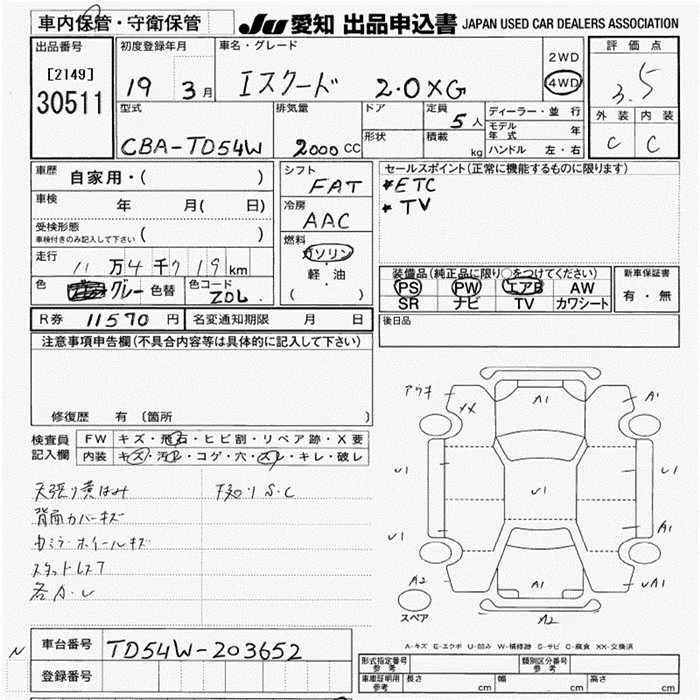 車内保管・守衛保管 JU 愛知 出品申込書 JAPAN USED CAR DEALERS ASSOCIATION
出品番号 初度登録年月 車名・グレード 2WD 評価点
[2149] 30511 19 3月 エスクード 2.0XG 4WD 3.5
型式 排気量 ドア 定員 ディーラー・並行 外装 内装
CBA-TD54W 2000CC 5人 モデル年式 年 C C
形状 積載 kg ハンドル 左・右
車歴 自家用・( ) シフト FAT セールスポイント(正常に機能するものに限ります)
車検 年 月( 日) 冷房 AAC *ETC
受検形態 車検付きのみ記入して下さい ( ) *TV
走行 11万4千719km 燃料 ガソリン 軽・油 ( )
装備品(純正品に限り○をつけてください) 新車保証書
色 グレー 色替 色コード ZDL PS PW エアB AW 有・無
SR ナビ TV カワシート
R券 11570円 名変通知期限 月 日 後日品
注意事項申告欄(不具合内容等は具体的に記入して下さい)
修復歴 有(箇所 )
検査員記入欄 FW キズ・飛石・ヒビ割・リペア跡・X要
内装 キズ・汚レ・コゲ・穴・スレ・キレ・破レ
天張り黄ばみ 下廻りS・C
背面カバーキズ
カミラ・ホイールキズ
スタットレス7
各A・U
アウキ XX A1 A1
U1 U1 U1
U1 A1
A2 A1 UA1
スペア A2
A-キズ E-エクボ U-凹み W-補修跡 S-サビ C-腐食 XX-交換済
N 車台番号 TD54W-203652
登録番号
形式指定番号 参考 類別区分番号 参考
車庫証明用 参考 長さ cm 幅 cm 高さ cm